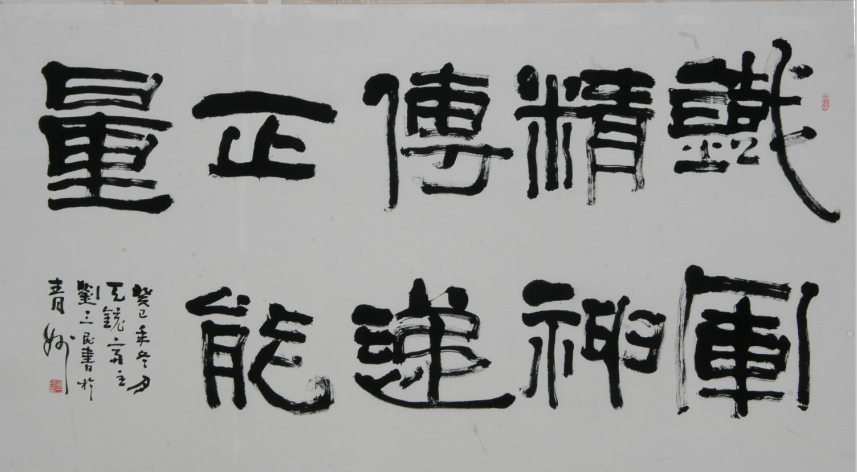 鐵軍
精神
傳递
正能
量
癸巳年冬月
齋主
劉三民書於
青州